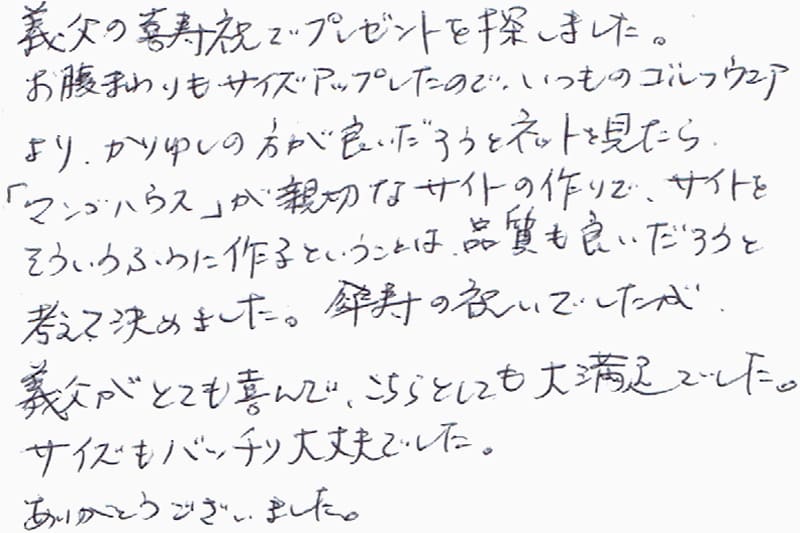 義父の喜寿祝でプレゼントを探しました。
お腹まわりもサイズアップしたので、いつものゴルフウエア
より、かりゆしの方が良いだろうとネットを見たら、
「マンゴハウス」が親切なサイトの作りで、サイトを
そういうふうに作るということは、品質も良いだろうと
考えて決めました。傘寿の祝いでしたが、
義父がとても喜んで、こちらとしても大満足でした。
サイズもバッチリ大丈夫でした。
ありがとうございました。